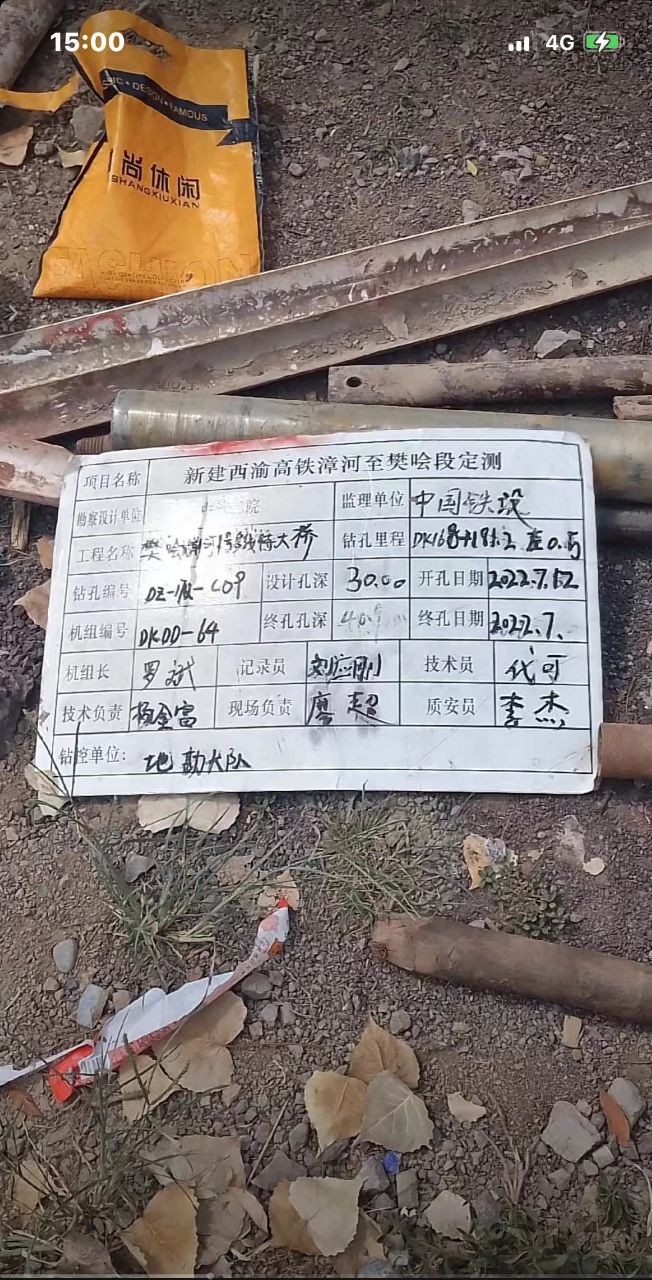 15:00
4G
DESIGN•FAMOUS
尚休闲
SHANGXIUXIAN
FASHION
项目名称 新建西渝高铁漳河至樊哙段定测
勘察设计单位 院 监理单位 中国铁设
工程名称 大桥 钻孔里程
钻孔编号 设计孔深 30.00 开孔日期
机组编号 DKDD-64 终孔孔深 终孔日期 2022.7.
机组长 罗斌 记录员 技术员 代可
技术负责 杨全富 现场负责 廖超 质安员 李杰
钻控单位: 地勘大队